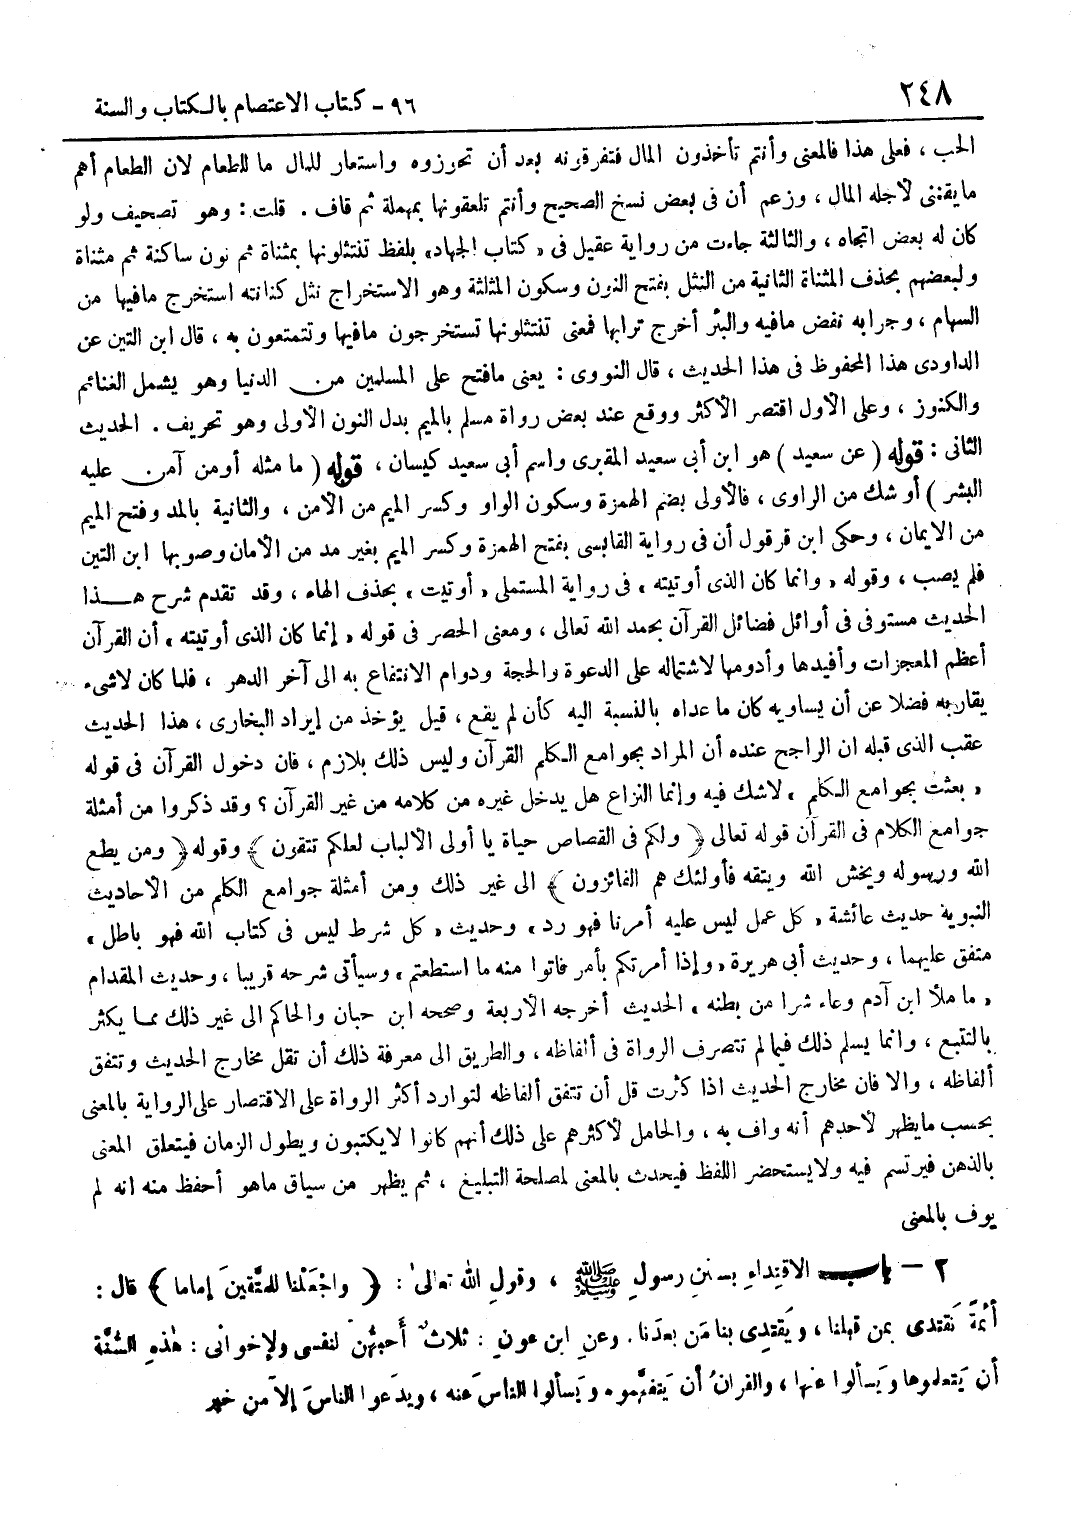 ٢٤٨
٩٦ - كتاب الاعتصام بالكتاب والسنة
الحب ، فعلى هذا فالمعنى وأنتم تأخذون المال فتفرقونه بعد أن تحوزوه واستعار للمال ما للطعام لان الطعام أهم
ما يقتنى لأجله المال ، وزعم أن فى بعض نسخ الصحيح وأنتم تلعقونها بمهملة ثم قاف . قلت : وهو تصحيف ولو
كان له بعض اتجاه ، والثالثة جاءت من رواية عقيل فى « كتاب الجهاد» بلفظ تنتثلونها بمثناة ثم نون ساكنة ثم مثناة
ولبعضهم بحذف المثناة الثانية من النثل بفتح النون وسكون المثلثة وهو الاستخراج نثل كنانته استخرج مافيها من
السهام ، وجرابه نفض مافيه والبئر أخرج ترابها فمعنى تنتثلونها تستخرجون مافيها وتتمتعون به ، قال ابن التين عن
الداودى هذا المحفوظ فى هذا الحديث ، قال النووى : يعنى مافتح على المسلمين من الدنيا وهو يشمل الغنائم
والكنوز ، وعلى الأول اقتصر الأكثر ووقع عند بعض رواة مسلم بالميم بدل النون الأولى وهو تحريف . الحديث
الثانى : قوله ( عن سعيد ) هو ابن أبى سعيد المقبرى واسم أبى سعيد كيسان ، قوله ( ما مثله أومن آمن عليه
البشر ) أو شك من الراوى ، فالأولى بضم الهمزة وسكون الواو وكسر الميم من الأمن ، والثانية بالمد وفتح الميم
من الايمان ، وحكى ابن قرقول أن فى رواية القابسى بفتح الهمزة وكسر الميم بغير مد من الأمان وصوبها ابن التين
فلم يصب ، وقوله « وانما كان الذى أوتيته » فى رواية المستملى « أوتيت » بحذف الهاء ، وقد تقدم شرح هذا
الحديث مستوفى فى أوائل فضائل القرآن بحمد الله تعالى ، ومعنى الحصر فى قوله « إنما كان الذى أوتيته » أن القرآن
أعظم المعجزات وأفيدها وأدومها لاشتماله على الدعوة والحجة ودوام الانتفاع به الى آخر الدهر ، فلما كان لاشىء
يقاربه فضلا عن أن يساويه كان ما عداه بالنسبة اليه كأن لم يقع ، قيل يؤخذ من إيراد البخارى ، هذا الحديث
عقب الذى قبله ان الراجح عنده أن المراد بجوامع الكلم القرآن وليس ذلك بلازم ، فان دخول القرآن فى قوله
« بعثت بجوامع الكلم » لاشك فيه وإنما النزاع هل يدخل غيره من كلامه من غير القرآن ؟ وقد ذكروا من أمثلة
جوامع الكلام فى القرآن قوله تعالى ﴿ ولكم فى القصاص حياة يا أولى الألباب لعلكم تتقون ﴾ وقوله ﴿ ومن يطع
الله ورسوله ويخش الله ويتقه فأولئك هم الفائزون ﴾ الى غير ذلك ومن أمثلة جوامع الكلم من الأحاديث
النبوية حديث عائشة « كل عمل ليس عليه أمرنا فهو رد » وحديث « كل شرط ليس فى كتاب الله فهو باطل »
متفق عليهما ، وحديث أبى هريرة « وإذا أمرتكم بأمر فاتوا منه ما استطعتم » وسيأتى شرحه قريبا ، وحديث المقدام
« ما ملأ ابن آدم وعاء شرا من بطنه » الحديث أخرجه الأربعة وصححه ابن حبان والحاكم الى غير ذلك مما يكثر
بالتتبع ، وانما يسلم ذلك فيما لم تتصرف الرواة فى ألفاظه ، والطريق الى معرفة ذلك أن تقل مخارج الحديث وتتفق
ألفاظه ، والا فان مخارج الحديث اذا كثرت قل أن تتفق ألفاظه لتوارد أكثر الرواة على الاقتصار على الرواية بالمعنى
بحسب مايظهر لأحدهم أنه واف به ، والحامل لأكثرهم على ذلك أنهم كانوا لايكتبون ويطول الزمان فيتعلق المعنى
بالذهن فيرتسم فيه ولايستحضر اللفظ فيحدث بالمعنى لمصلحة التبليغ ، ثم يظهر من سياق ماهو أحفظ منه انه لم
يوف بالمعنى
٢ - باب الاقتداء بسنن رسول ﷺ ، وقول الله تعالى : ﴿ واجْعَلْنا للمتَّقينَ إماما ﴾ قال :
أئمّةً نَقتدى بمن قبلنا ، ويَقتدى بنا مَن بعدَنا . وعن ابن عون : ثلاثٌ أُحبُّهن لنفسى ولإخوانى : هٰذهِ السُّنَّة
أن يَتعلموها ويَسألوا عنها ، والقرانُ أن يَتفهَّموه ويَسألوا الناسَ عنه ، ويدَعوا الناسَ إلاّ من خير